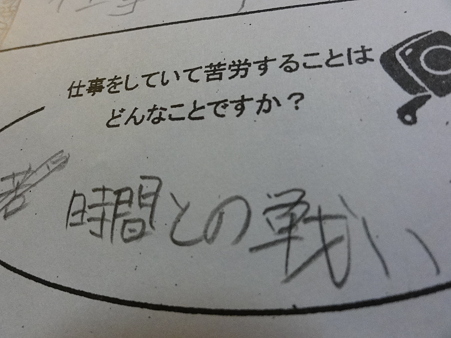 仕事をしていて苦労することは
どんなことですか？
時間との戦い